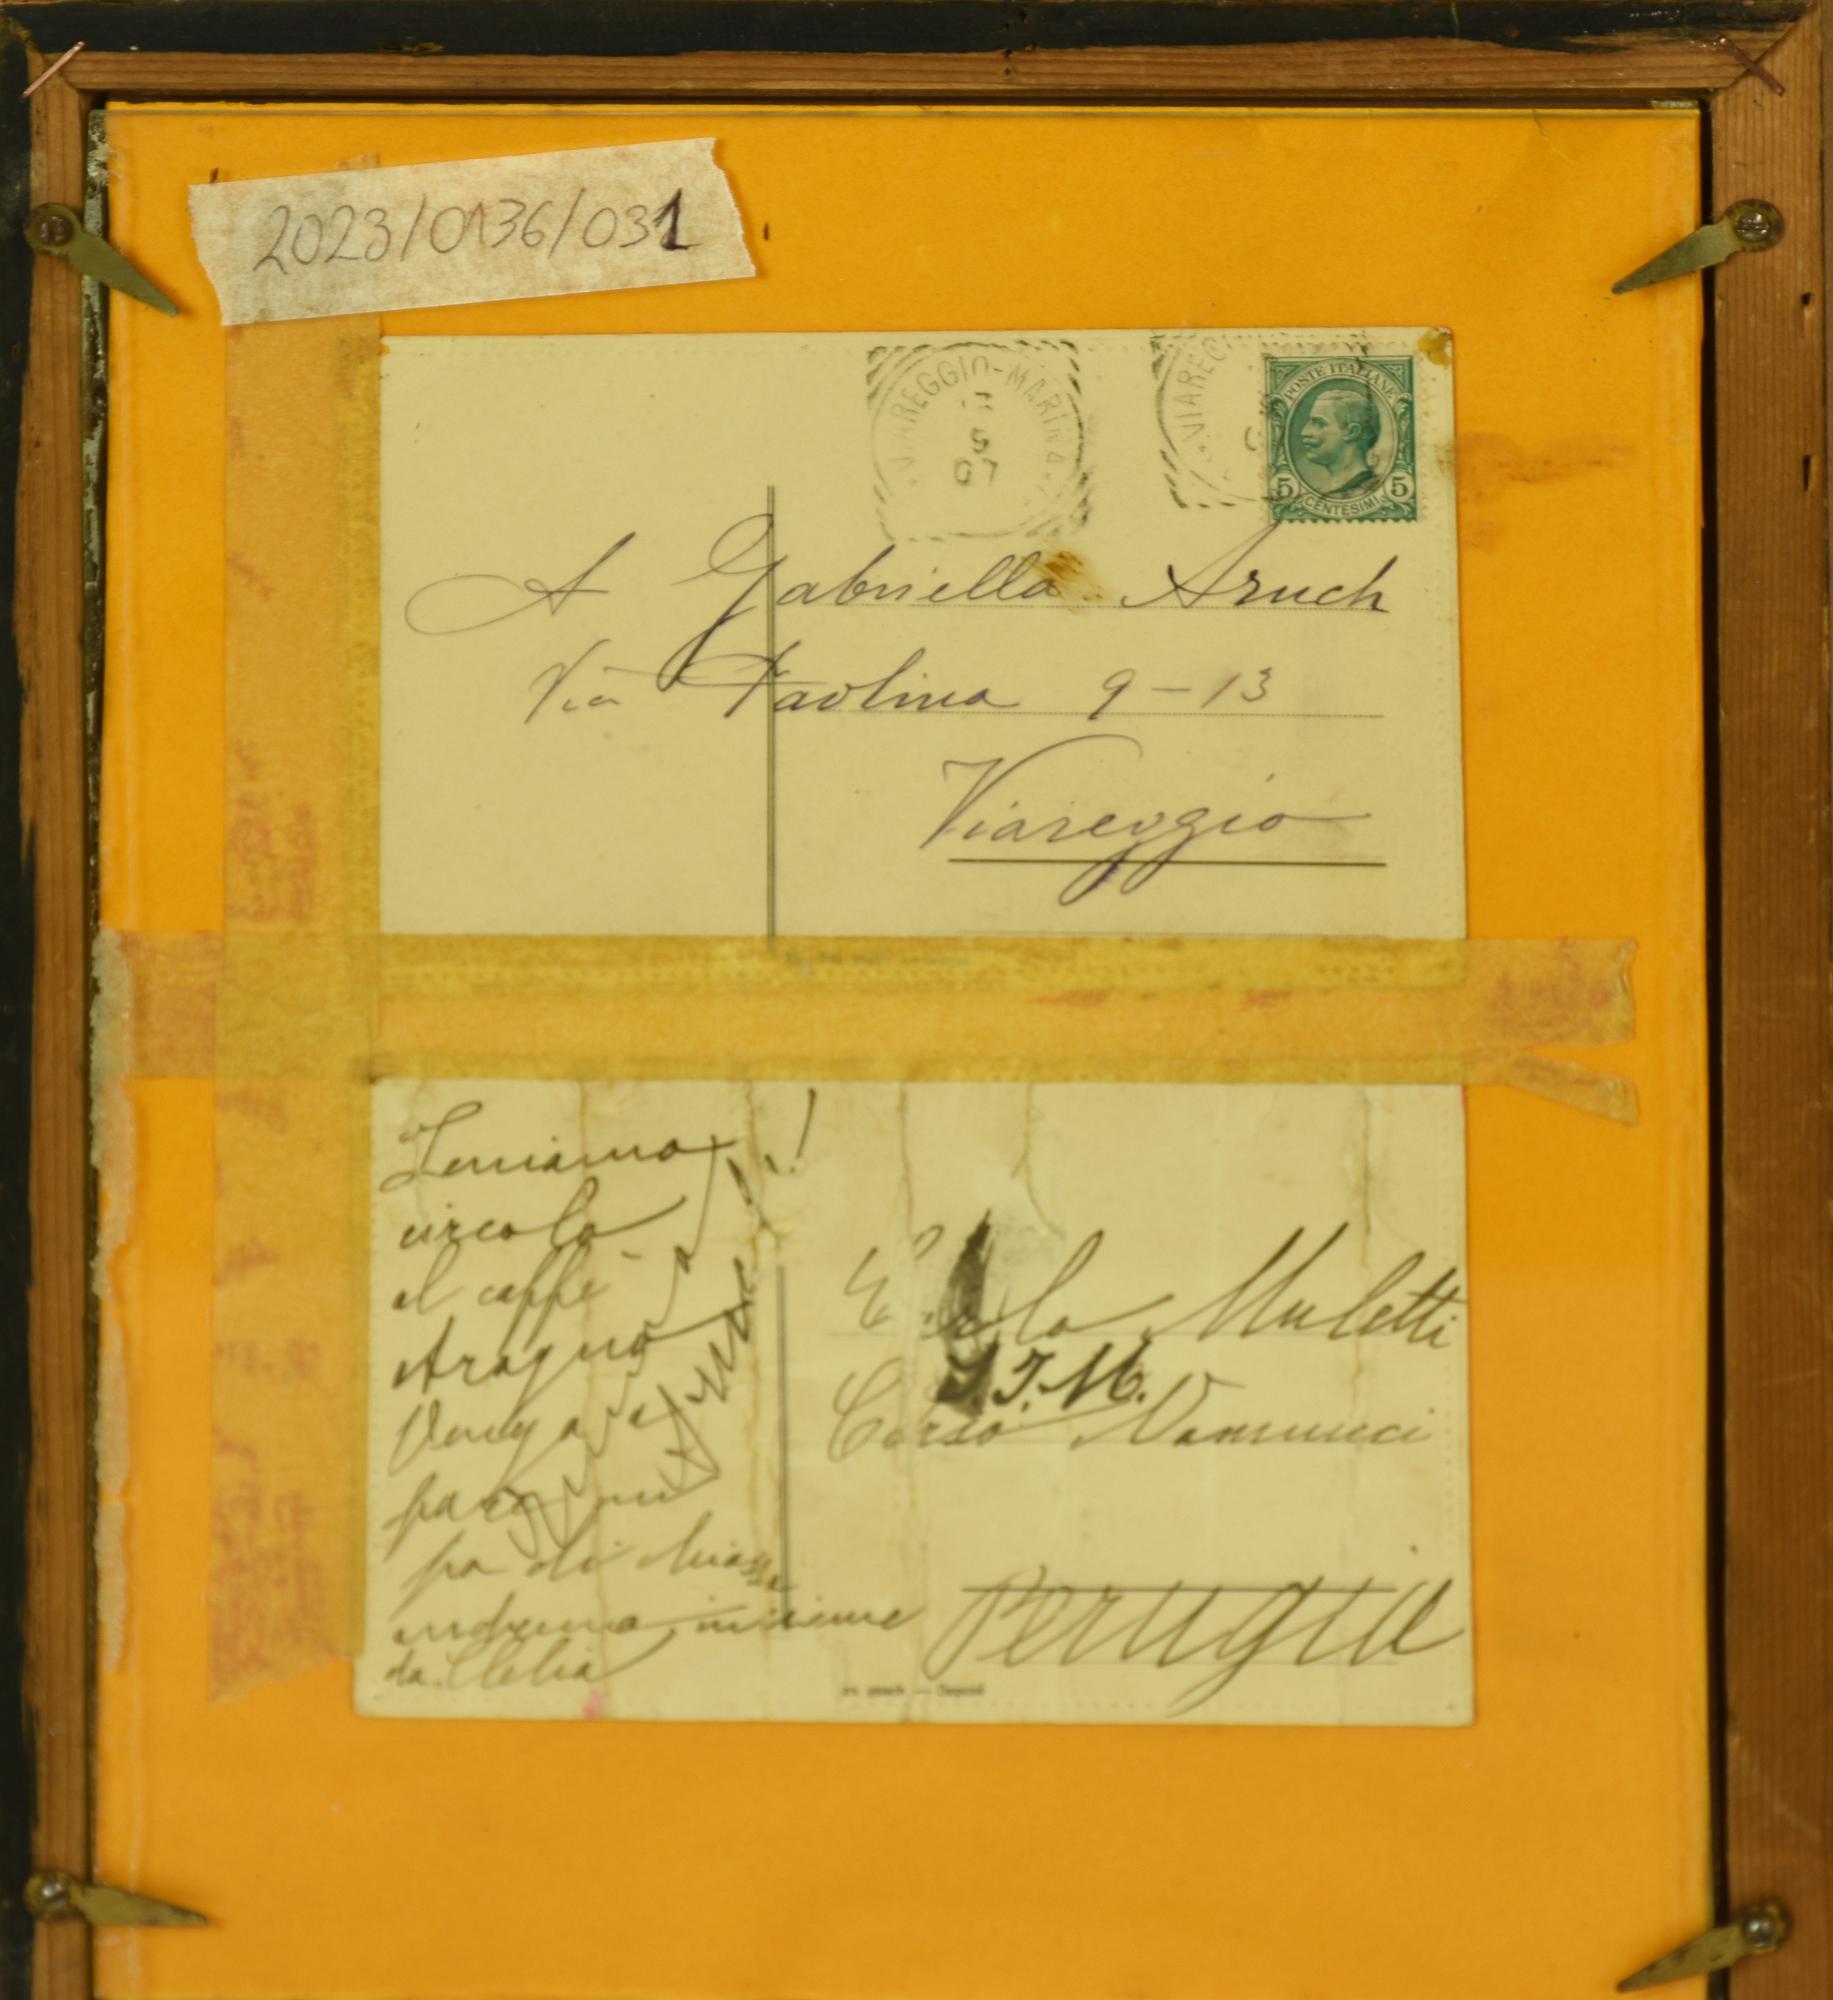 2023/0136/031
VIAREGGIO-MARINA
5
07
VIAREG
POSTE ITALIANE
5 5
CENTESIMI
A Gabriella Aruch
Via Paolina 9-13
Viareggio
Teniamo
circolo
al caffè
Aragno
Venga
di
andremo insieme
da Clelia
Muletti
S.I.M.
Corso Vannucci
Perugia